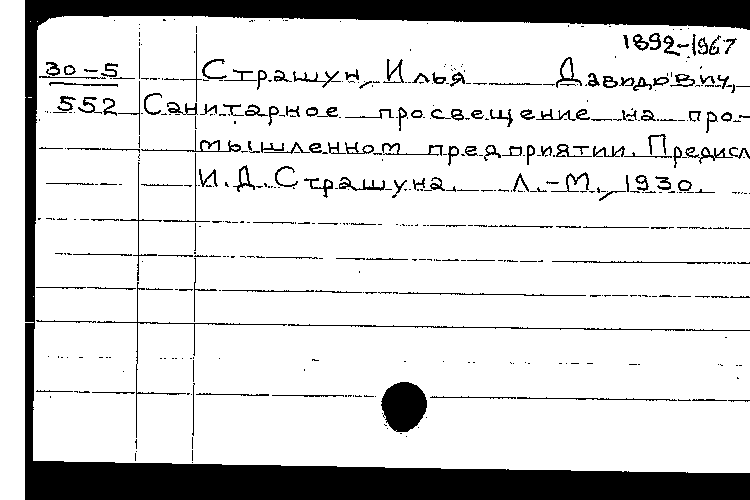 1892-1967
30-5 Страшун, Илья Давидович,
552 Санитарное просвещение на про-
мышленном предприятии. Предисл
И.Д. Страшуна. Л.-М., 1930.